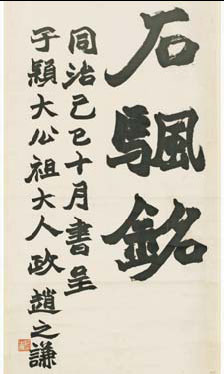 石颿銘
同治己巳十月書呈
子穎大公祖大人政 趙之謙